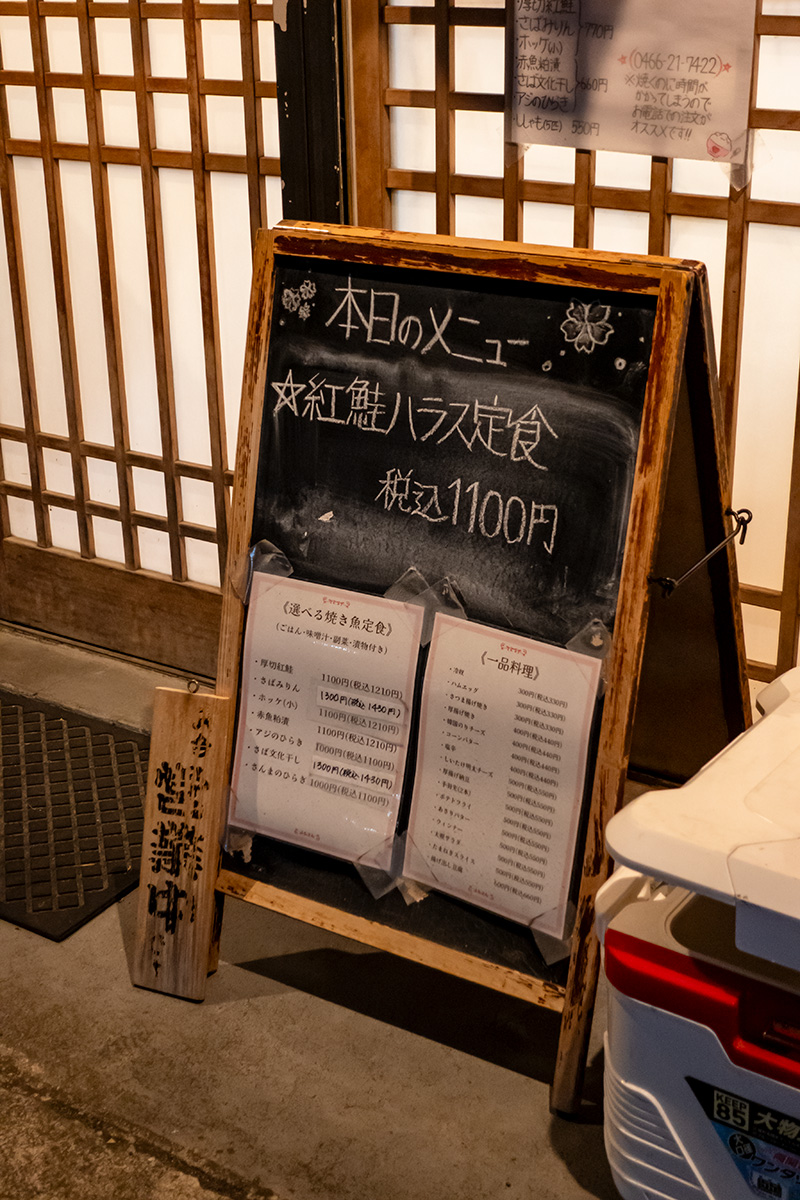 ・厚切紅鮭
・さばみりん
・ホッケ(小)
770円
・赤魚粕漬
・さば文化干し
660円
・アジのひらき
・ししゃも(5匹) 550円
(0466-21-7422)
※焼くのに時間が
かかってしまうので
お電話での注文が
オススメです!!
本日のメニュー
☆紅鮭ハラス定食
税込1100円
《選べる焼き魚定食》
(ごはん・味噌汁・副菜・漬物付き)
・厚切紅鮭 1100円(税込1210円)
・さばみりん 1300円(税込1430円)
・ホッケ(小) 1100円(税込1210円)
・赤魚粕漬 1100円(税込1210円)
・アジのひらき 1000円(税込1100円)
・さば文化干し 1300円(税込1430円)
・さんまのひらき 1000円(税込1100円)
《一品料理》
・冷奴 300円(税込330円)
・ハムエッグ 300円(税込330円)
・さつま揚げ焼き 300円(税込330円)
・厚揚げ焼き 400円(税込440円)
400円(税込440円)
・コーンバター 400円(税込440円)
400円(税込440円)
・しいたけ明太チーズ 500円(税込550円)
・厚揚げ納豆 500円(税込550円)
500円(税込550円)
・ポテトフライ 500円(税込550円)
・あさりバター 500円(税込550円)
・ウィンナー 500円(税込550円)
500円(税込550円)
・たまねぎスライス 500円(税込550円)
・揚げ出し豆腐
営業中
KEEP
85
大物
ワンタ